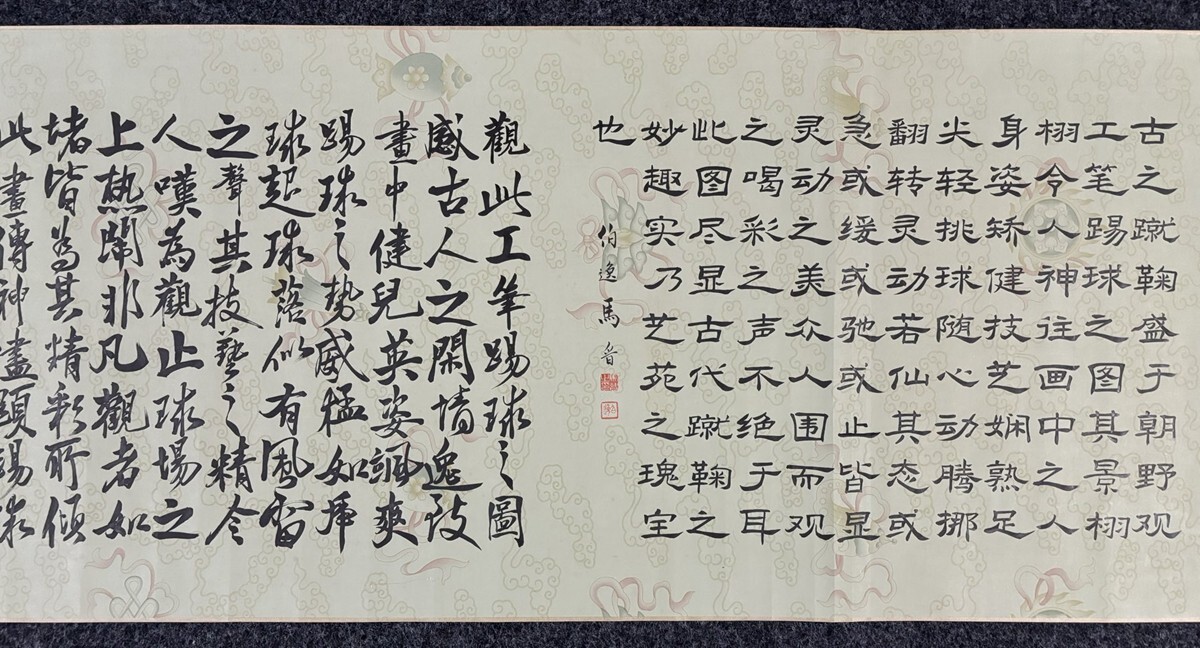 古之蹴鞠盛于朝野观
工笔踢球之图其景栩
栩令人神往画中之人
身姿矫健技芝娴熟足
尖轻挑球随心动腾挪
翻转灵动若仙其态或
急或缓或驰或止皆显
灵动之美众人围而观
之喝彩之声不绝于耳
此图尽显古代蹴鞠之
妙趣实乃芝苑之瑰宝
也
伯逸馬晋
觀此工筆踢球之圖
感古人之閑情逸致
畫中健兒英姿颯爽
踢球之势威猛如虎
球起球落似有風雷
之聲其技藝之精令
人嘆為觀止球場之
上热鬧非凡觀者如
堵皆為其精彩所傾
此畫傳神盡顯踢球